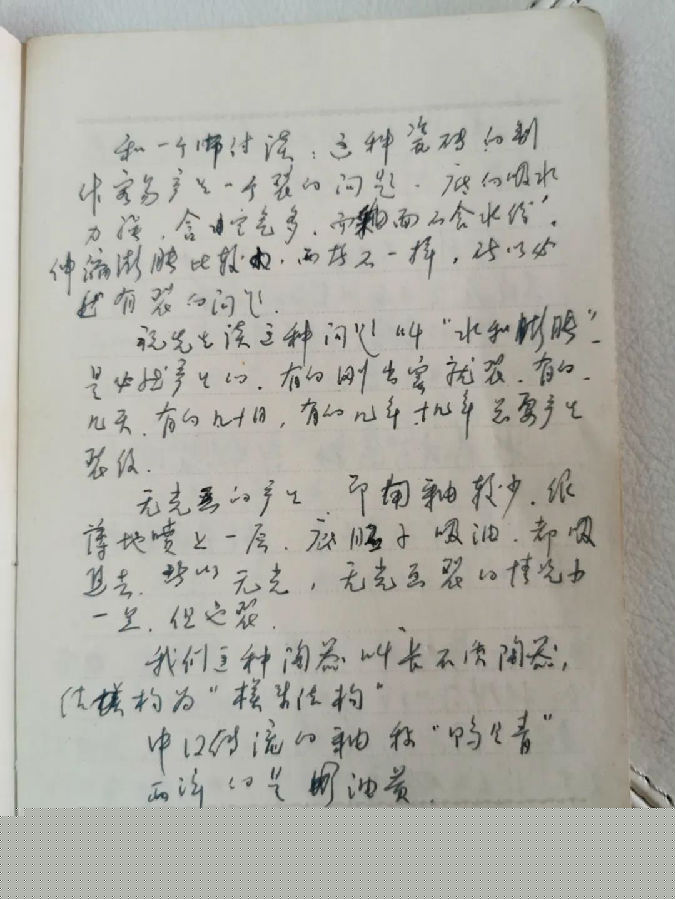 和一个师付谈：这种瓷砖的制
作容易产生一个裂的问题．底的吸水
力强，含空气多，而釉面不含水份，
伸缩澎胀比较大．两者不一样，所以必
然有裂的问题．
说先生谈这种问题叫“水和膨胀”
是必然产生的．有的刚出窑就裂．有的
几天．有的几十日，有的几年十几年总要产生
裂纹．
无光面的产生．即用釉较少．很
薄地喷上一层．底胚子吸油．都吸
进去．所以无光，无光面裂的情况少
一点．但也裂．
我们这种陶器叫长石质陶器，
结构为“
中江的流的釉称“鸭蛋青”
两淂的是油黄